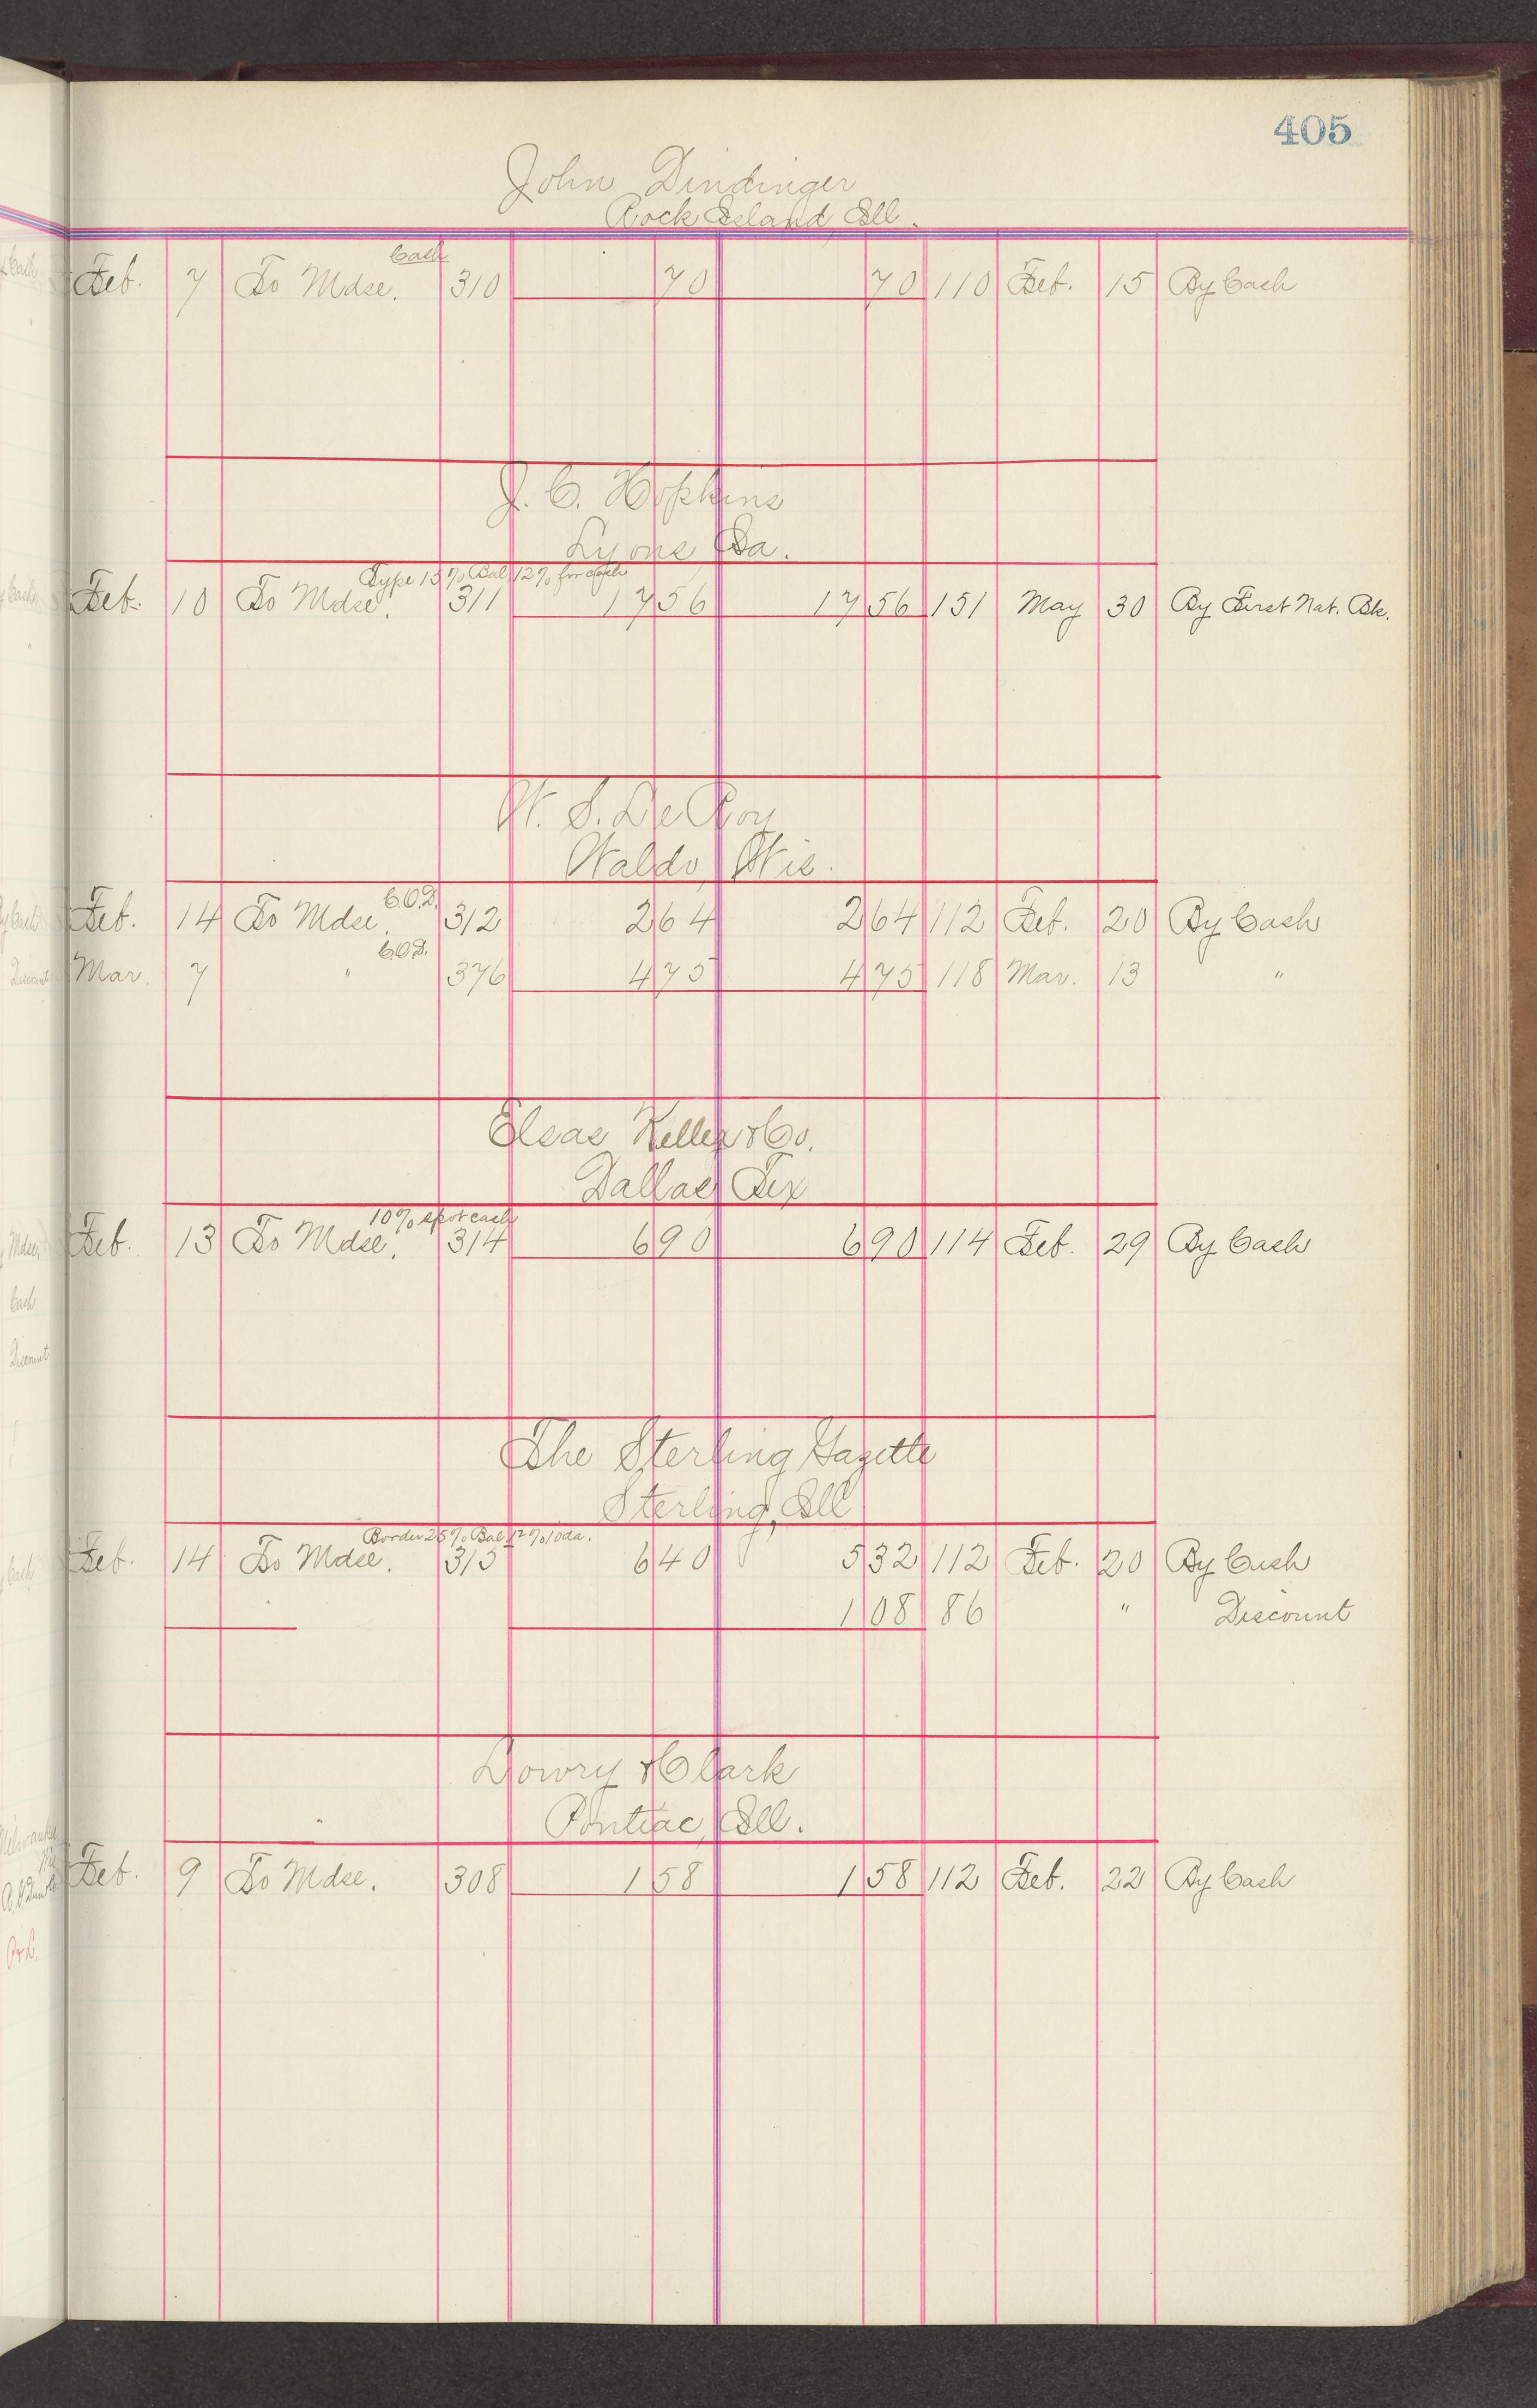 405
John Dindinger
Rock Island, Ill.
Cash
Feb. 7 To Mdse. 310 70 70 110 Feb. 15 By Cash
J. C. Hopkins
Lyons Ia.
Type 15% Bal 12% for cash
Feb. 10 To Mdse. 311 17 56 17 56 151 May 30 By First Nat. Bk.
W. S. DeRoy
Waldo, Wis.
C.O.D.
Feb. 14 To Mdse. 312 2 64 2 64 112 Feb. 20 By Cash
C.O.D.
Mar. 7 " 376 4 75 4 75 118 Mar. 13 "
Elsas Keller & Co.
Dallas, Tex
10% spot cash
Feb. 13 To Mdse. 314 6 90 6 90 114 Feb. 29 By Cash
The Sterling Gazette
Sterling, Ill
Border 25% Bal 12% 10da.
Feb. 14 To Mdse. 315 6 40 5 32 112 Feb. 20 By Cash
1 08 86 " Discount
Lowry & Clark
Pontiac, Ill.
Feb. 9 To Mdse. 308 1 58 1 58 112 Feb. 22 By Cash